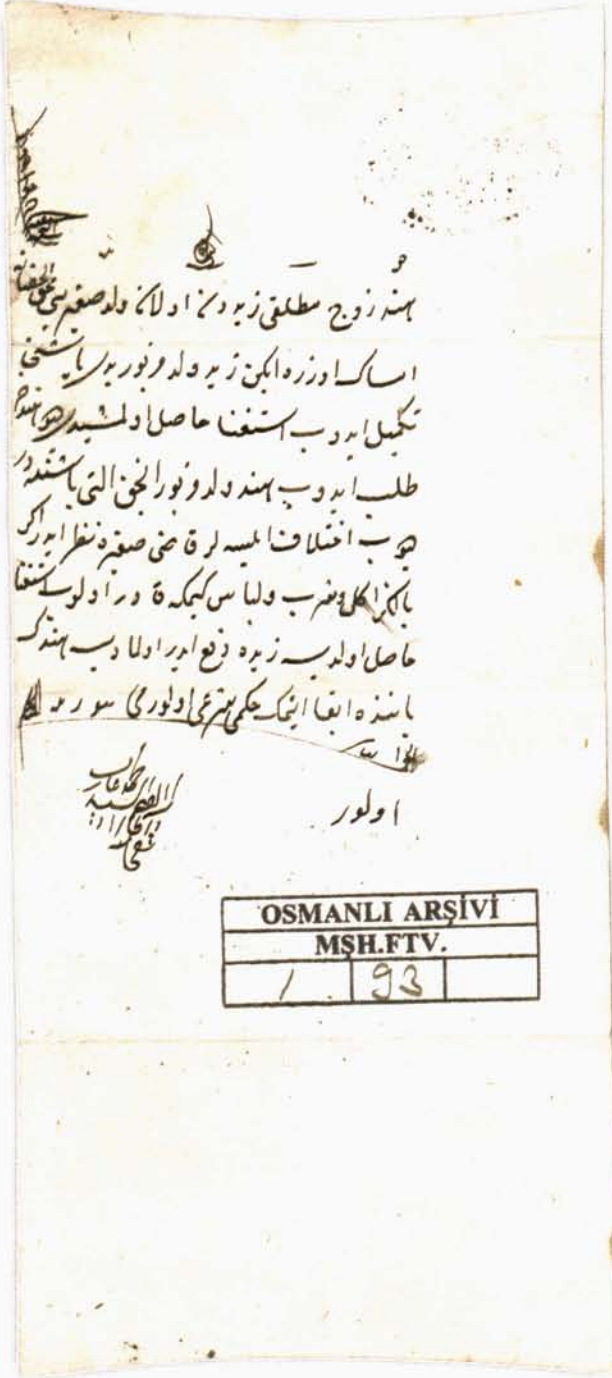 هو
هند زوج مطلقی زیددن اولان ولد صغیرینی بحق الحضانه
امساك اوزره ایكن زید ولد مزبور یدی یاشنی
تكمیل ایدوب استغنا حاصل اولمشیدی دیو هنددن
طلب ایدوب هند ولد مزبور انجق التی یاشنده در
دیوب اختلاف ایلسه لر قاضی صغیره نظر ایدر اكر
یالكز اكل وشرب ولباس كیمكه قادر اولوب استغنا
حاصل اولدیسه زیده دفع ایدر اولمادیسه هندك
یاننده ابقا ایتمك حكمی شرعی اولورمی بیوریله
الجواب
اولور
OSMANLI ARŞİVİ
MŞH.FTV.
1 93